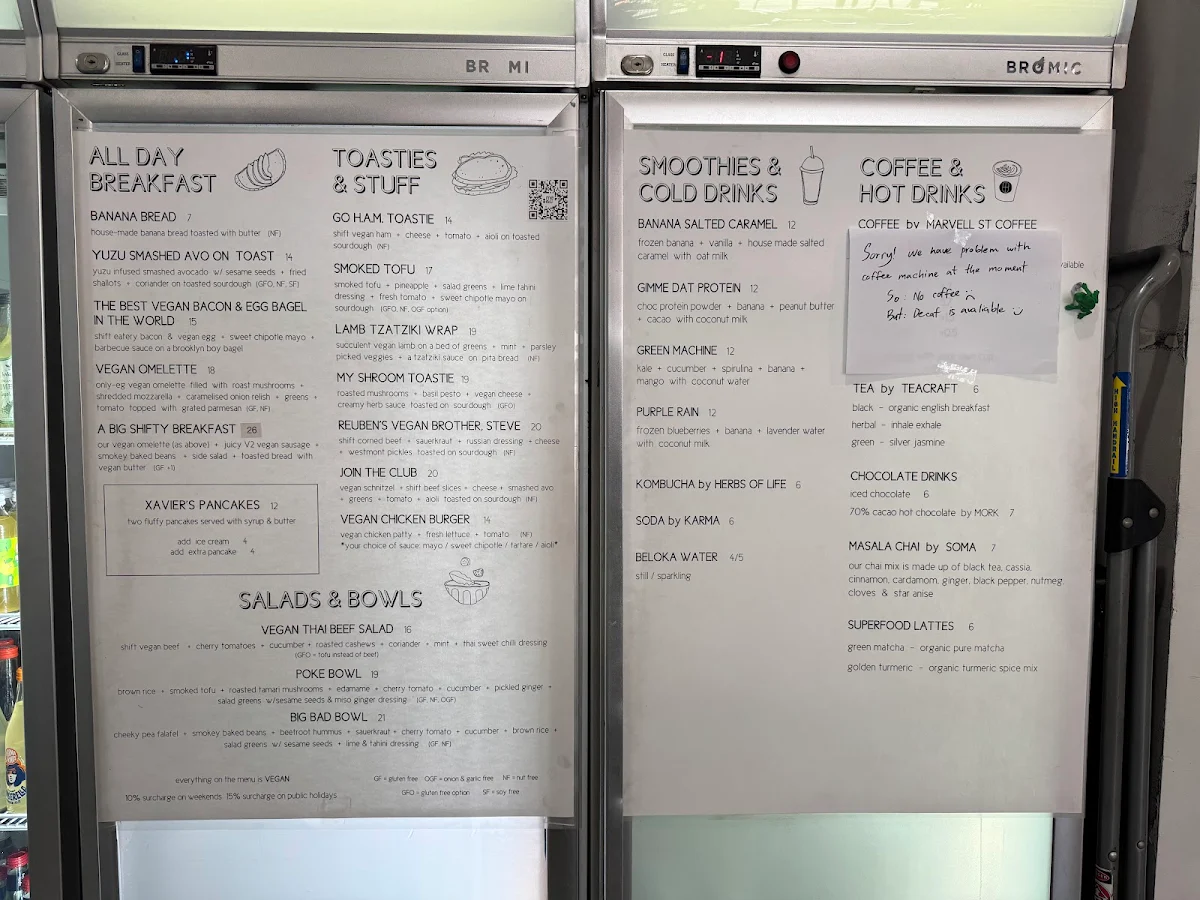 BR MI
BROMIC
-1
ALL DAY
BREAKFAST
BANANA BREAD 7
house-made banana bread toasted with butter (NF)
YUZU SMASHED AVO ON TOAST 14
yuzu infused smashed avocado w/ sesame seeds + fried
shallots + coriander on toasted sourdough (GFO, NF, SF)
THE BEST VEGAN BACON & EGG BAGEL
IN THE WORLD 15
shift eatery bacon & vegan egg + sweet chipotle mayo +
barbecue sauce on a brooklyn boy bagel
VEGAN OMELETTE 18
only-eg vegan omelette filled with roast mushrooms +
shredded mozzarella + caramelised onion relish + greens +
tomato topped with grated parmesan (GF, NF)
A BIG SHIFTY BREAKFAST 26
our vegan omelette (as above) + juicy V2 vegan sausage +
smokey baked beans + side salad + toasted bread with
vegan butter (GF +1)
XAVIER'S PANCAKES 12
two fluffy pancakes served with syrup & butter
add ice cream 4
add extra pancake 4
TOASTIES
& STUFF
GO H.A.M. TOASTIE 14
shift vegan ham + cheese + tomato + aioli on toasted
sourdough (NF)
SMOKED TOFU 17
smoked tofu + pineapple + salad greens + lime tahini
dressing + fresh tomato + sweet chipotle mayo on
sourdough (GFO, NF, OGF option)
LAMB TZATZIKI WRAP 19
succulent vegan lamb on a bed of greens + mint + parsley
picked veggies + a tzatziki sauce on pita bread (NF)
MY SHROOM TOASTIE 19
toasted mushrooms + basil pesto + vegan cheese +
creamy herb sauce toasted on sourdough (GFO)
REUBEN'S VEGAN BROTHER, STEVE 20
shift corned beef + sauerkraut + russian dressing + cheese
+ westmont pickles toasted on sourdough (NF)
JOIN THE CLUB 20
vegan schnitzel + shift beef slices + cheese + smashed avo
+ greens + tomato + aioli toasted on sourdough (NF)
VEGAN CHICKEN BURGER 14
vegan chicken patty + fresh lettuce + tomato (NF)
*your choice of sauce: mayo / sweet chipotle / tartare / aioli*
SALADS & BOWLS
VEGAN THAI BEEF SALAD 16
shift vegan beef + cherry tomatoes + cucumber + roasted cashews + coriander + mint + thai sweet chilli dressing
(GFO = tofu instead of beef)
POKE BOWL 19
brown rice + smoked tofu + roasted tamari mushrooms + edamame + cherry tomato + cucumber + pickled ginger +
salad greens w/sesame seeds & miso ginger dressing (GF, NF, OGF)
BIG BAD BOWL 21
cheeky pea falafel + smokey baked beans + beetroot hummus + sauerkraut + cherry tomato + cucumber + brown rice +
salad greens w/ sesame seeds + lime & tahini dressing (GF NF)
everything on the menu is VEGAN
10% surcharge on weekends 15% surcharge on public holidays
GF = gluten free OGF = onion & garlic free NF = nut free
GFO = gluten free option SF = soy free
SMOOTHIES &
COLD DRINKS
BANANA SALTED CARAMEL 12
frozen banana + vanilla + house made salted
caramel with oat milk
GIMME DAT PROTEIN 12
choc protein powder + banana + peanut butter
+ cacao with coconut milk
GREEN MACHINE 12
kale + cucumber + spirulina + banana +
mango with coconut water
PURPLE RAIN 12
frozen blueberries + banana + lavender water
with coconut milk
KOMBUCHA by HERBS OF LIFE 6
SODA by KARMA 6
BELOKA WATER 4/5
still / sparkling
COFFEE &
HOT DRINKS
COFFEE by MARVELL ST COFFEE
Sorry! we have problem with
coffee machine at the moment
So: No coffee :(
But: Decaf is avaliable :)
TEA by TEACRAFT 6
black - organic english breakfast
herbal - inhale exhale
green - silver jasmine
CHOCOLATE DRINKS
iced chocolate 6
70% cacao hot chocolate by MORK 7
MASALA CHAI by SOMA 7
our chai mix is made up of black tea, cassia,
cinnamon, cardamom, ginger, black pepper, nutmeg,
cloves & star anise
SUPERFOOD LATTES 6
green matcha - organic pure matcha
golden turmeric - organic turmeric spice mix
HIGH HANDRAIL